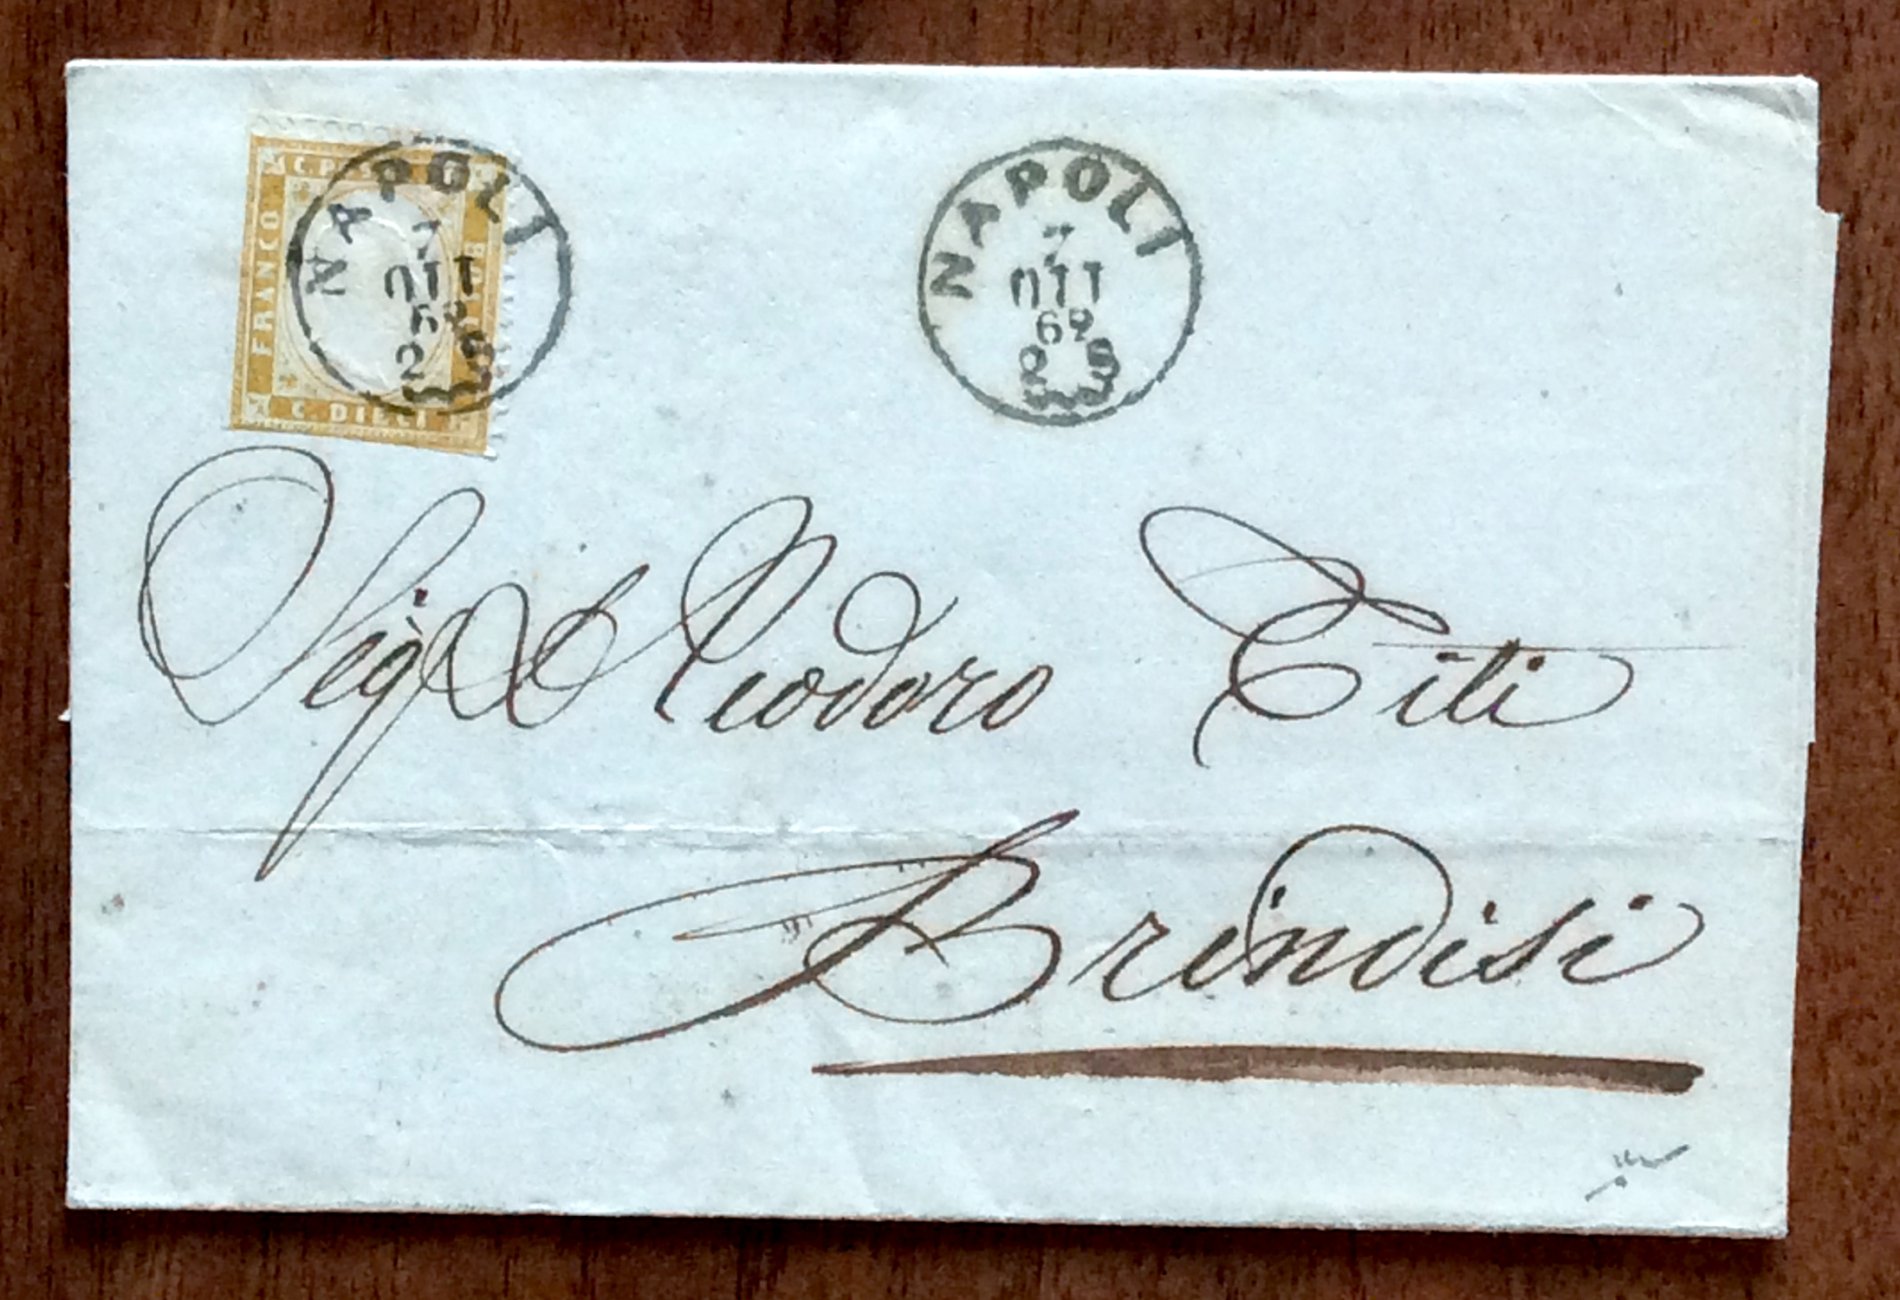 C. POSTE
FRANCO
BOLLO
C. DIECI
NAPOLI
7
OTT
62
2 S
NAPOLI
7
OTT
62
2 S
Sigr Teodoro Titi
Brindisi